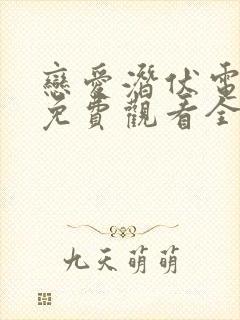 戀愛潛伏電
免費觀看全
九天萌萌